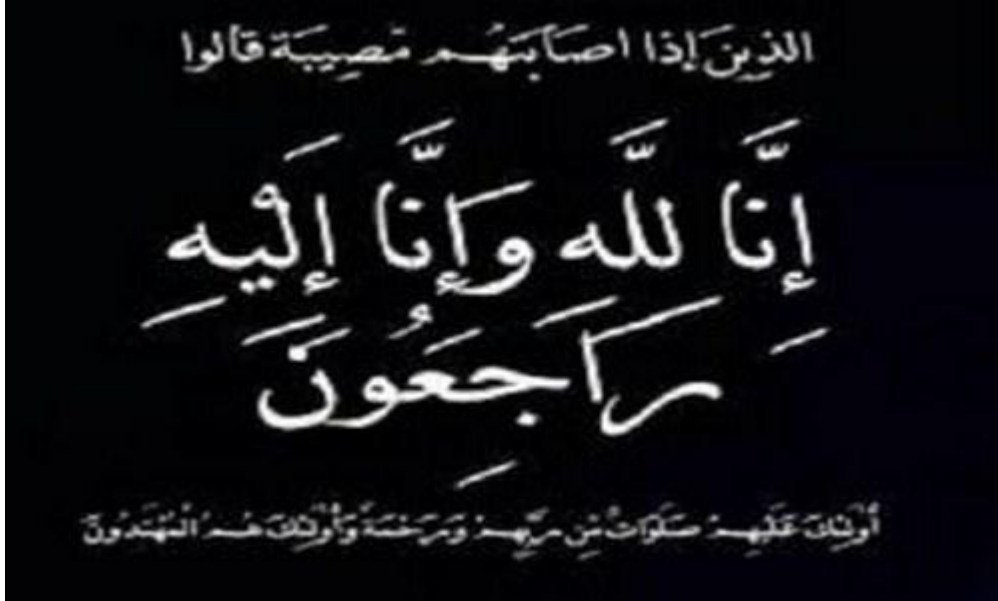 الذِينَ إذا اصَابَتهُم مّصِيبَة قالوا
إِنَّا لِلَّهِ وَإِنَّا إِلَيْهِ
رَاجِعُونَ
أُولَٰئِكَ عَلَيْهِمْ صَلَوَاتٌ مِّن رَّبِّهِمْ وَرَحْمَةٌ وَأُولَٰئِكَ هُمُ الْمُهْتَدُونَ